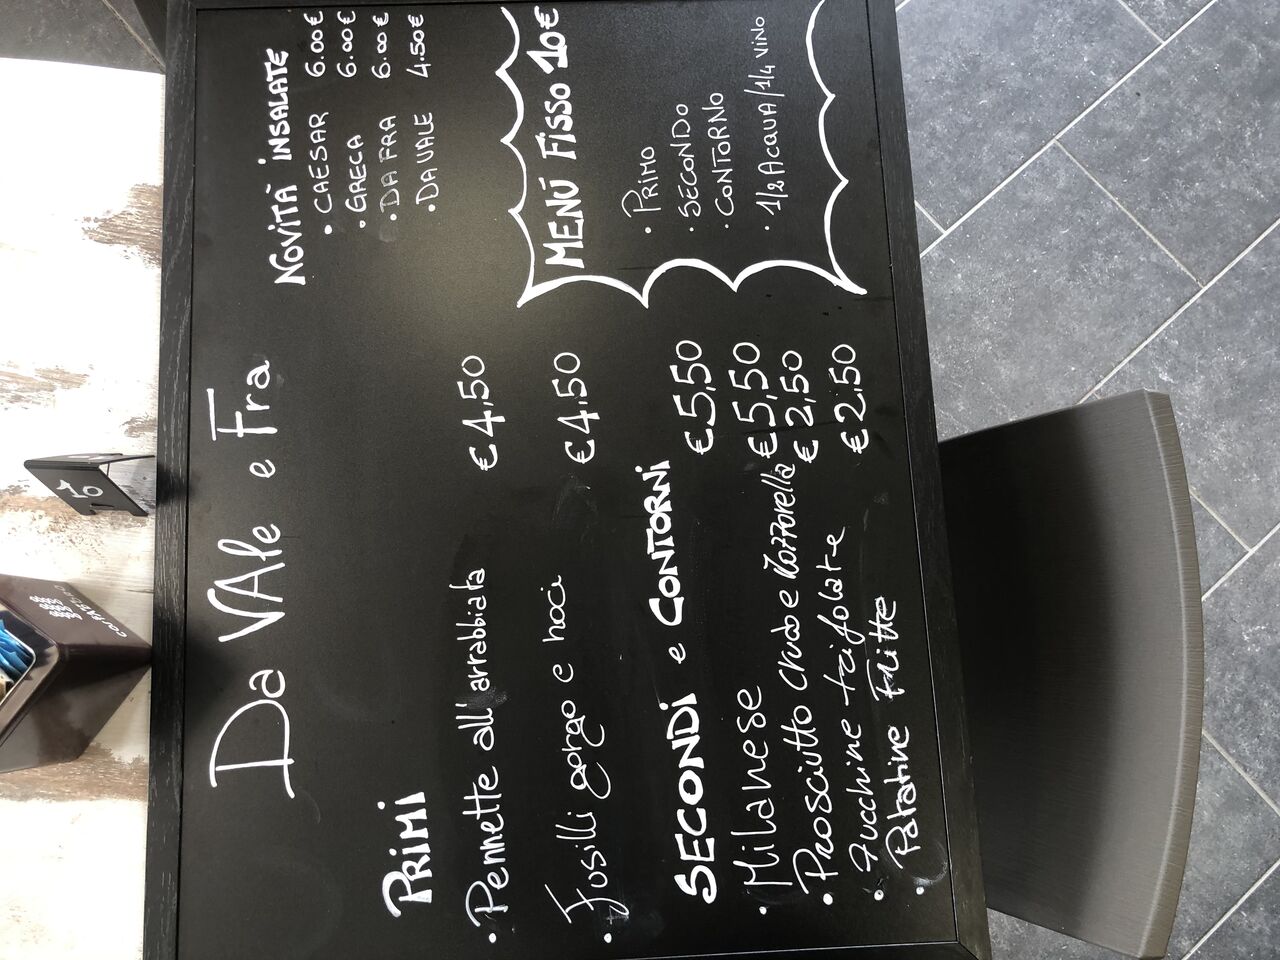 Da VAle e Fra
PRiMi
• Pennette all'arrabbiata €4,50
• Fusilli gorgo e noci €4,50
SECONDi e CONTORNi
• Milanese €5,50
• Prosciutto crudo e Mozzarella €5,50
• Zucchine trifolate €2,50
• Patatine Fritte €2,50
NOVITÀ iNSALATE
• CAESAR 6.00€
• GRECA 6.00€
• DA FRA 6.00€
• DA VALE 4.50€
MENÚ FISSO 10€
• PRIMO
• SECONDO
• CONTORNO
• 1/2 ACQUA/1/4 VINO
10